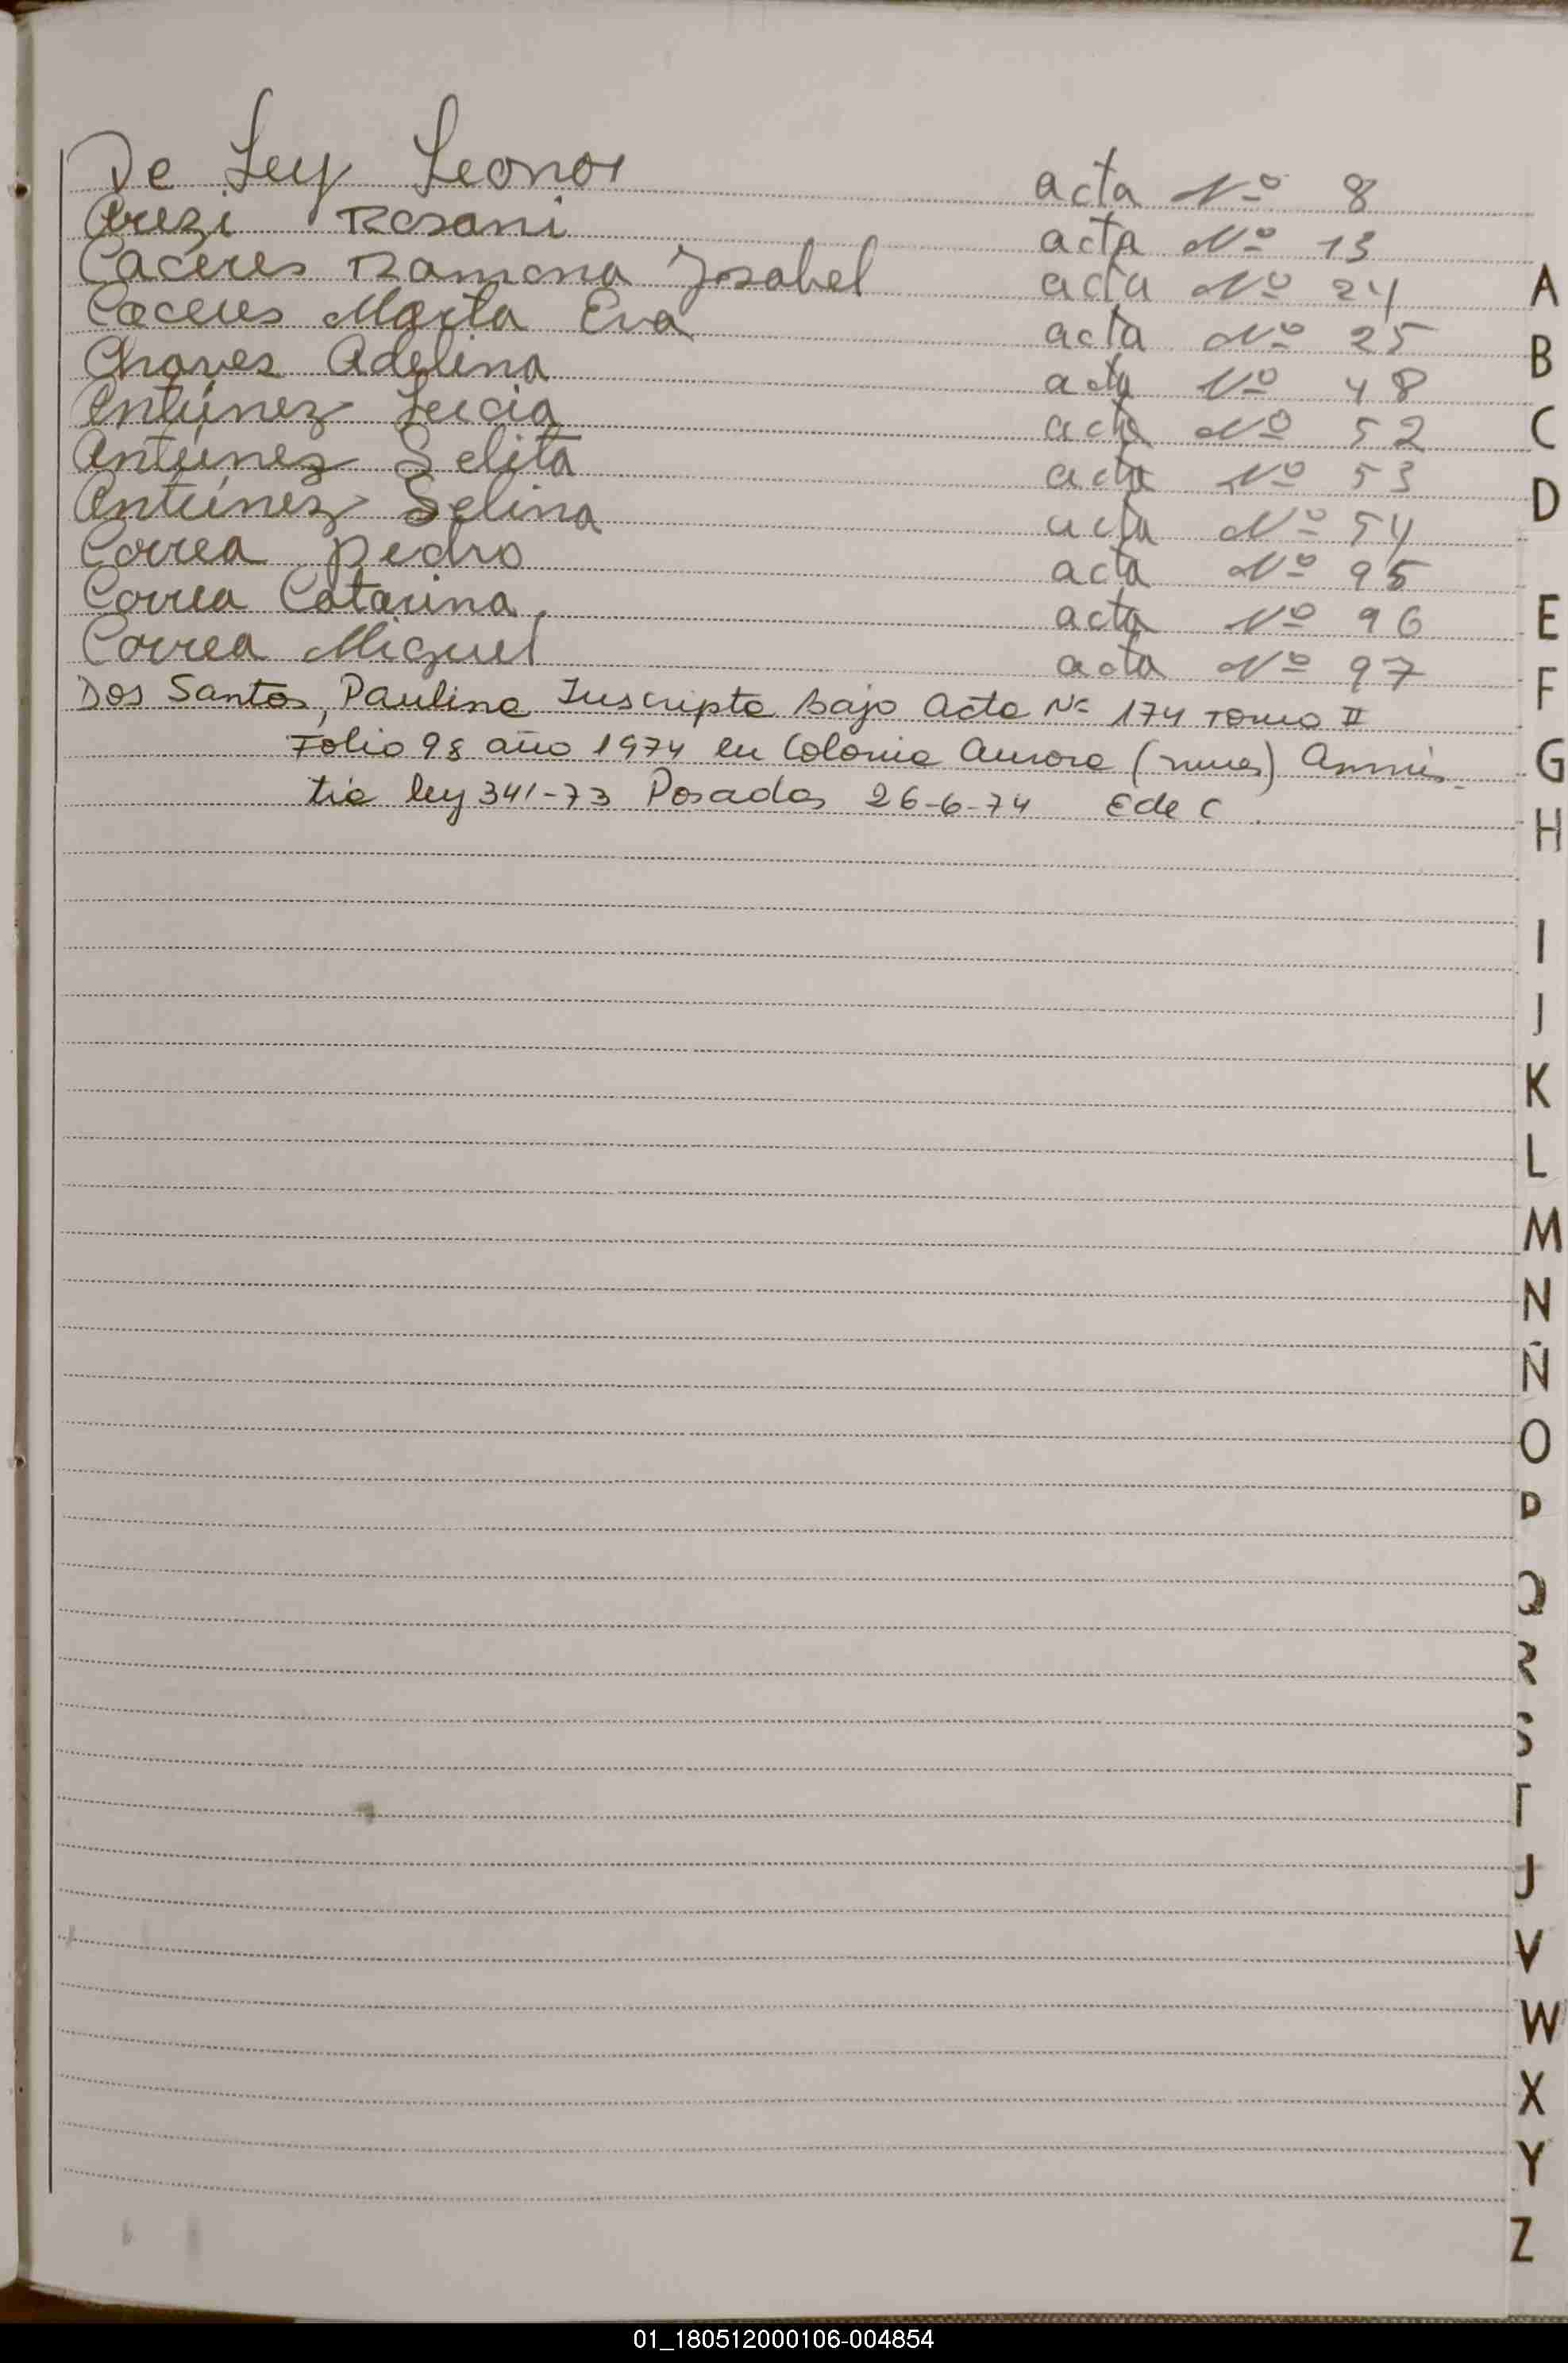 De Ley Leonor acta Nº 8
Arezi Rosani acta Nº 13
Caceres Ramona Ysabel acta Nº 24
Caceres Marta Eva acta Nº 25
Chaves Adelina acta Nº 48
Antúnez Lucia acta Nº 52
Antúnez Selita acta Nº 53
Antúnez Selina acta Nº 54
Correa Pedro acta Nº 95
Correa Catarina acta Nº 96
Correa Miguel acta Nº 97
Dos Santos, Paulina Inscripta Bajo Acta Nº 174 Tomo II
Folio 98 año 1974 en Colonia Aurora (mnes) Amnis-
tia ley 341-73 Posadas 26-6-74 E de C
A
B
C
D
E
F
G
H
I
J
K
L
M
N
Ñ
O
P
Q
R
S
T
U
V
W
X
Y
Z
01_180512000106-004854